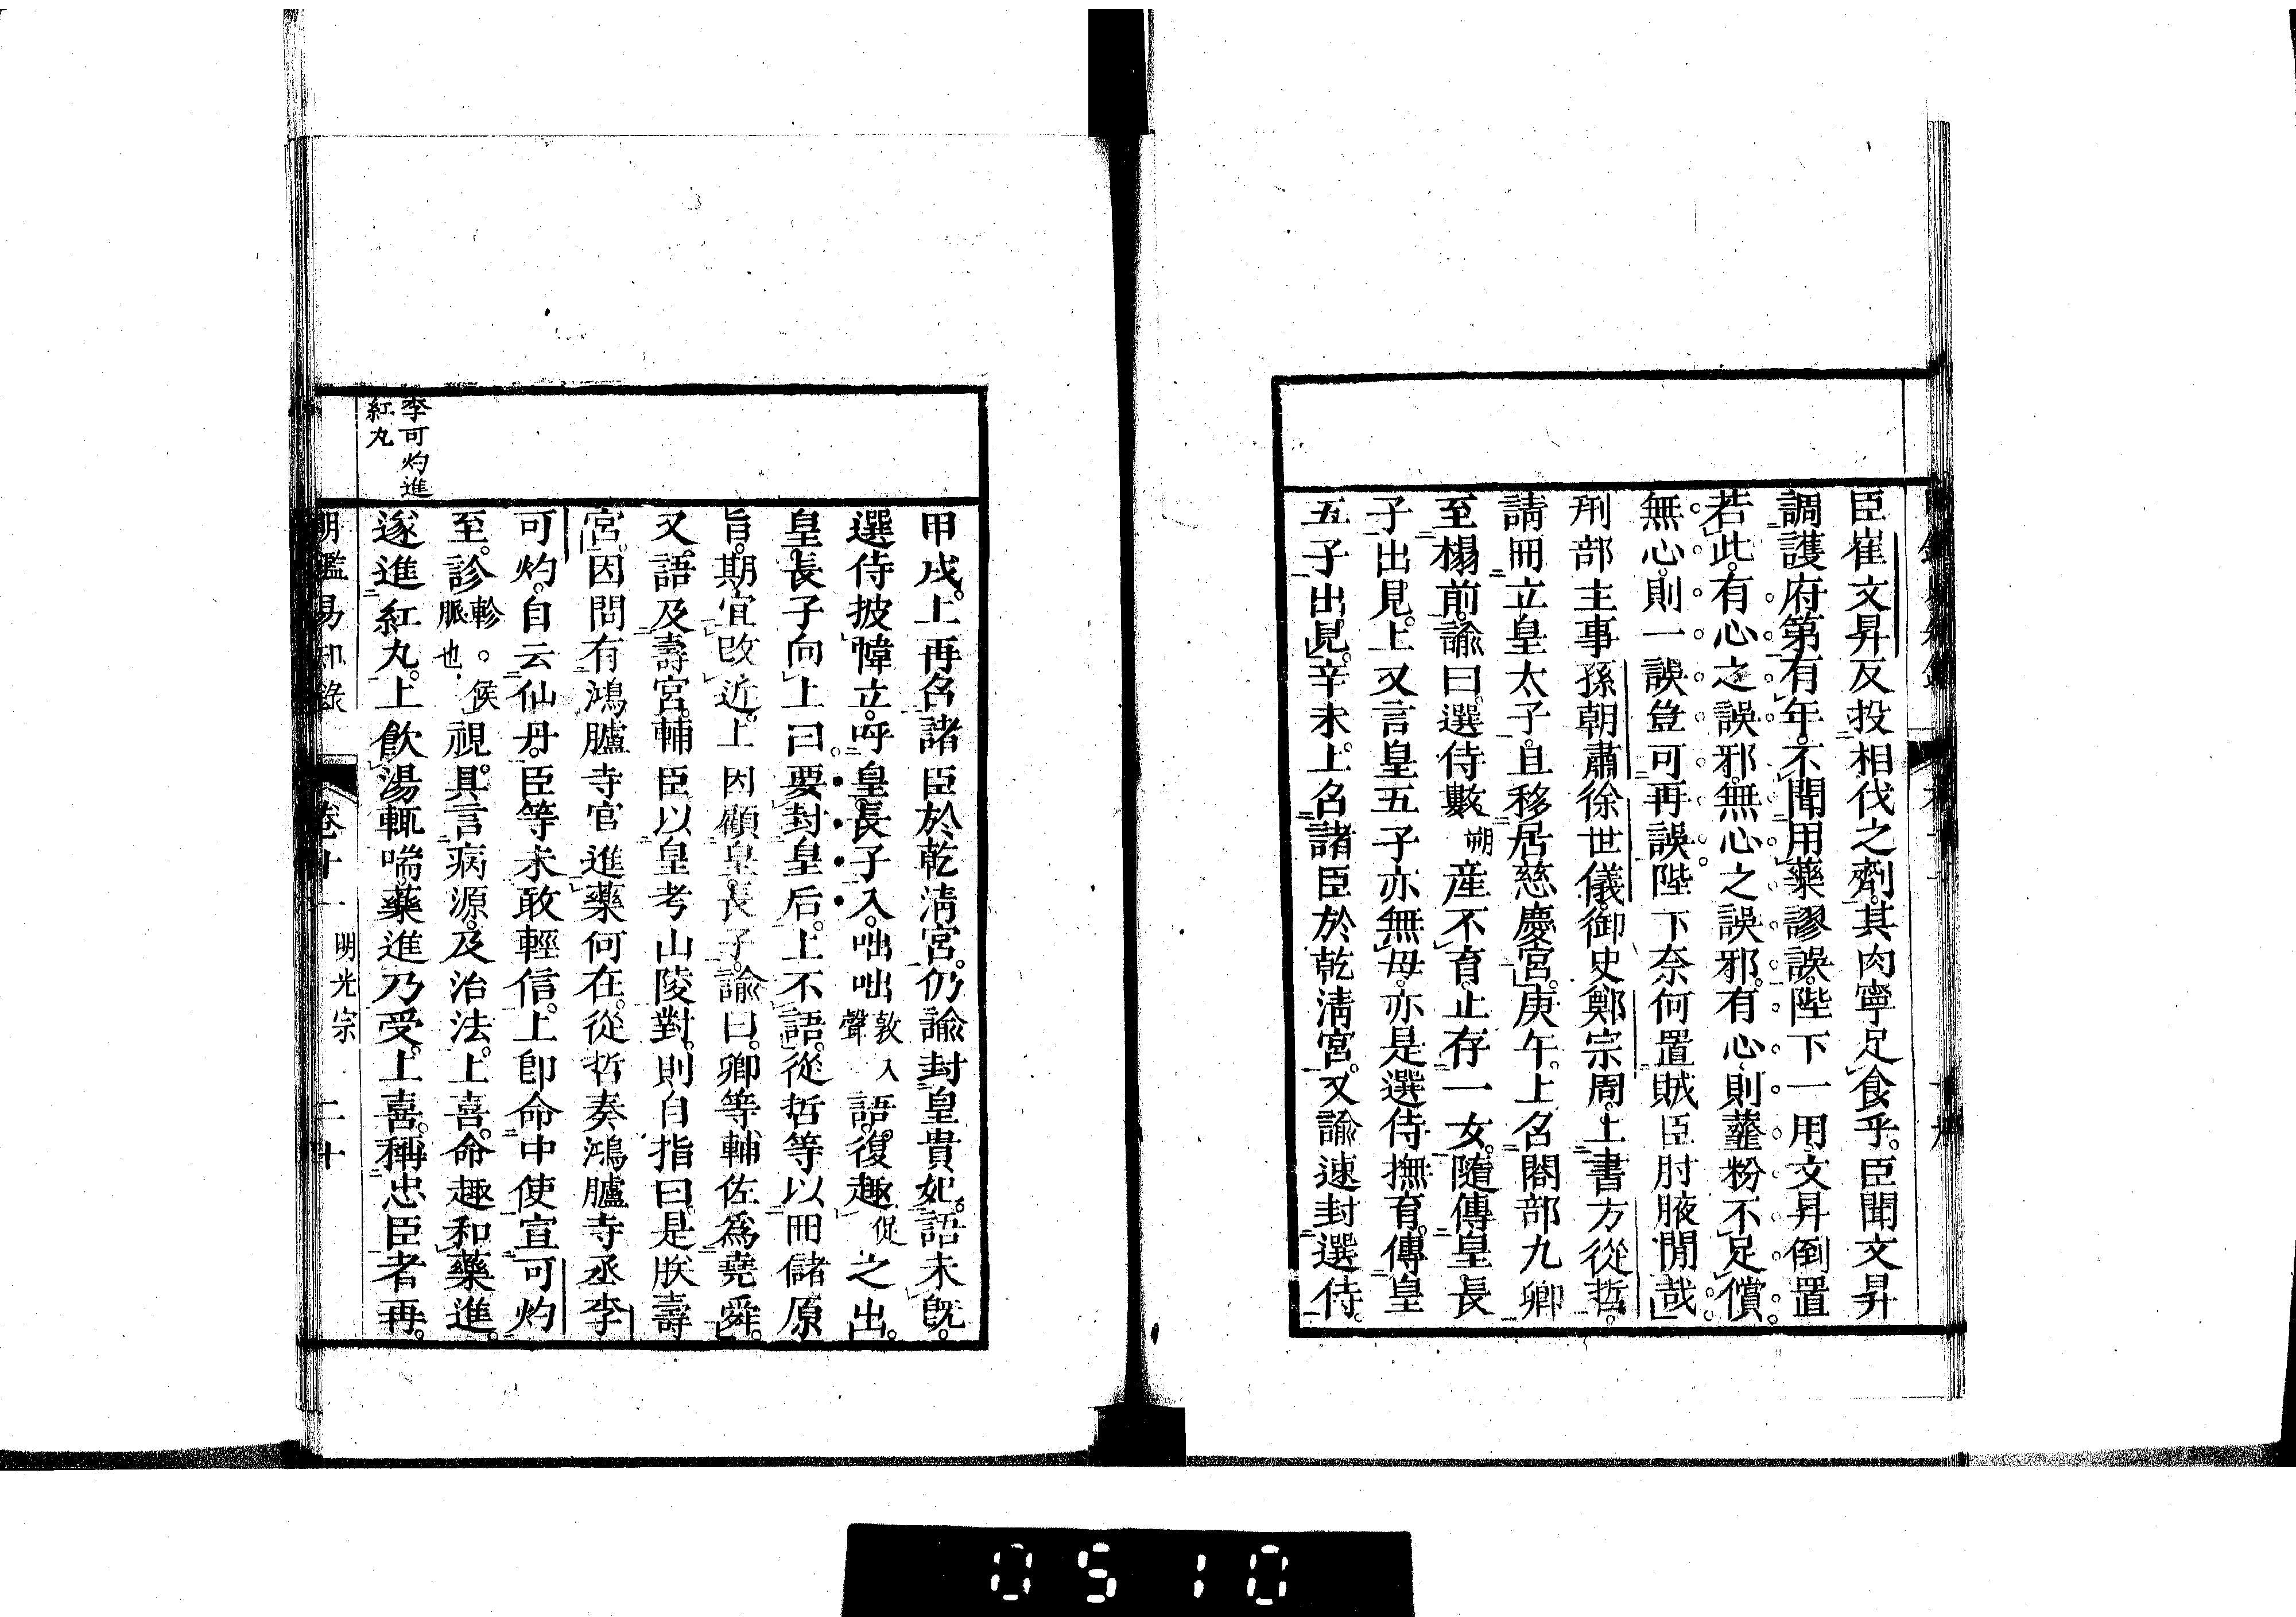 臣崔文昇反投相伐之劑。其肉寧足食乎。臣聞文昇
調護府第有年。不聞用藥謬誤。陛下一用文昇倒置
若此。有心之誤邪。無心之誤邪。有心則虀粉不足償。
無心則一誤豈可再誤。陛下奈何置賊臣肘腋閒哉
刑部主事孫朝肅徐世儀。御史鄭宗周。上書方從哲。
請冊立皇太子。且移居慈慶宮。庚午。上召閣部九卿
至榻前。諭曰。選侍數朔產不育。止存一女。隨傳皇長
子出見。上又言皇五子亦無母。亦是選侍撫育。傳皇
五子出見。辛未。上召諸臣於乾清宮。又諭速封選侍。
甲戌。上再召諸臣於乾清宮。仍諭封皇貴妃。語未旣。
選侍披幃立。呼皇長子入。咄咄敦入聲語。復趣促之出。
皇長子向上曰。要封皇后。上不語。從哲等以冊儲原
旨。期宜改近。上因顧皇長子。諭曰。卿等輔佐爲堯舜。
又語及壽宮。輔臣以皇考山陵對。則自指曰。是朕壽
宮。因問有鴻臚寺官進藥何在。從哲奏鴻臚寺丞李
可灼。自云仙丹。臣等未敢輕信。上卽命中使宣可灼
至。診軫。候脈也。視。具言病源。及治法。上喜。命趣和藥進。
李可灼進
紅丸
遂進紅丸。上飮湯輒喘。藥進乃受。上喜。稱忠臣者再。
明鑑易知錄 卷十一 明光宗 二十